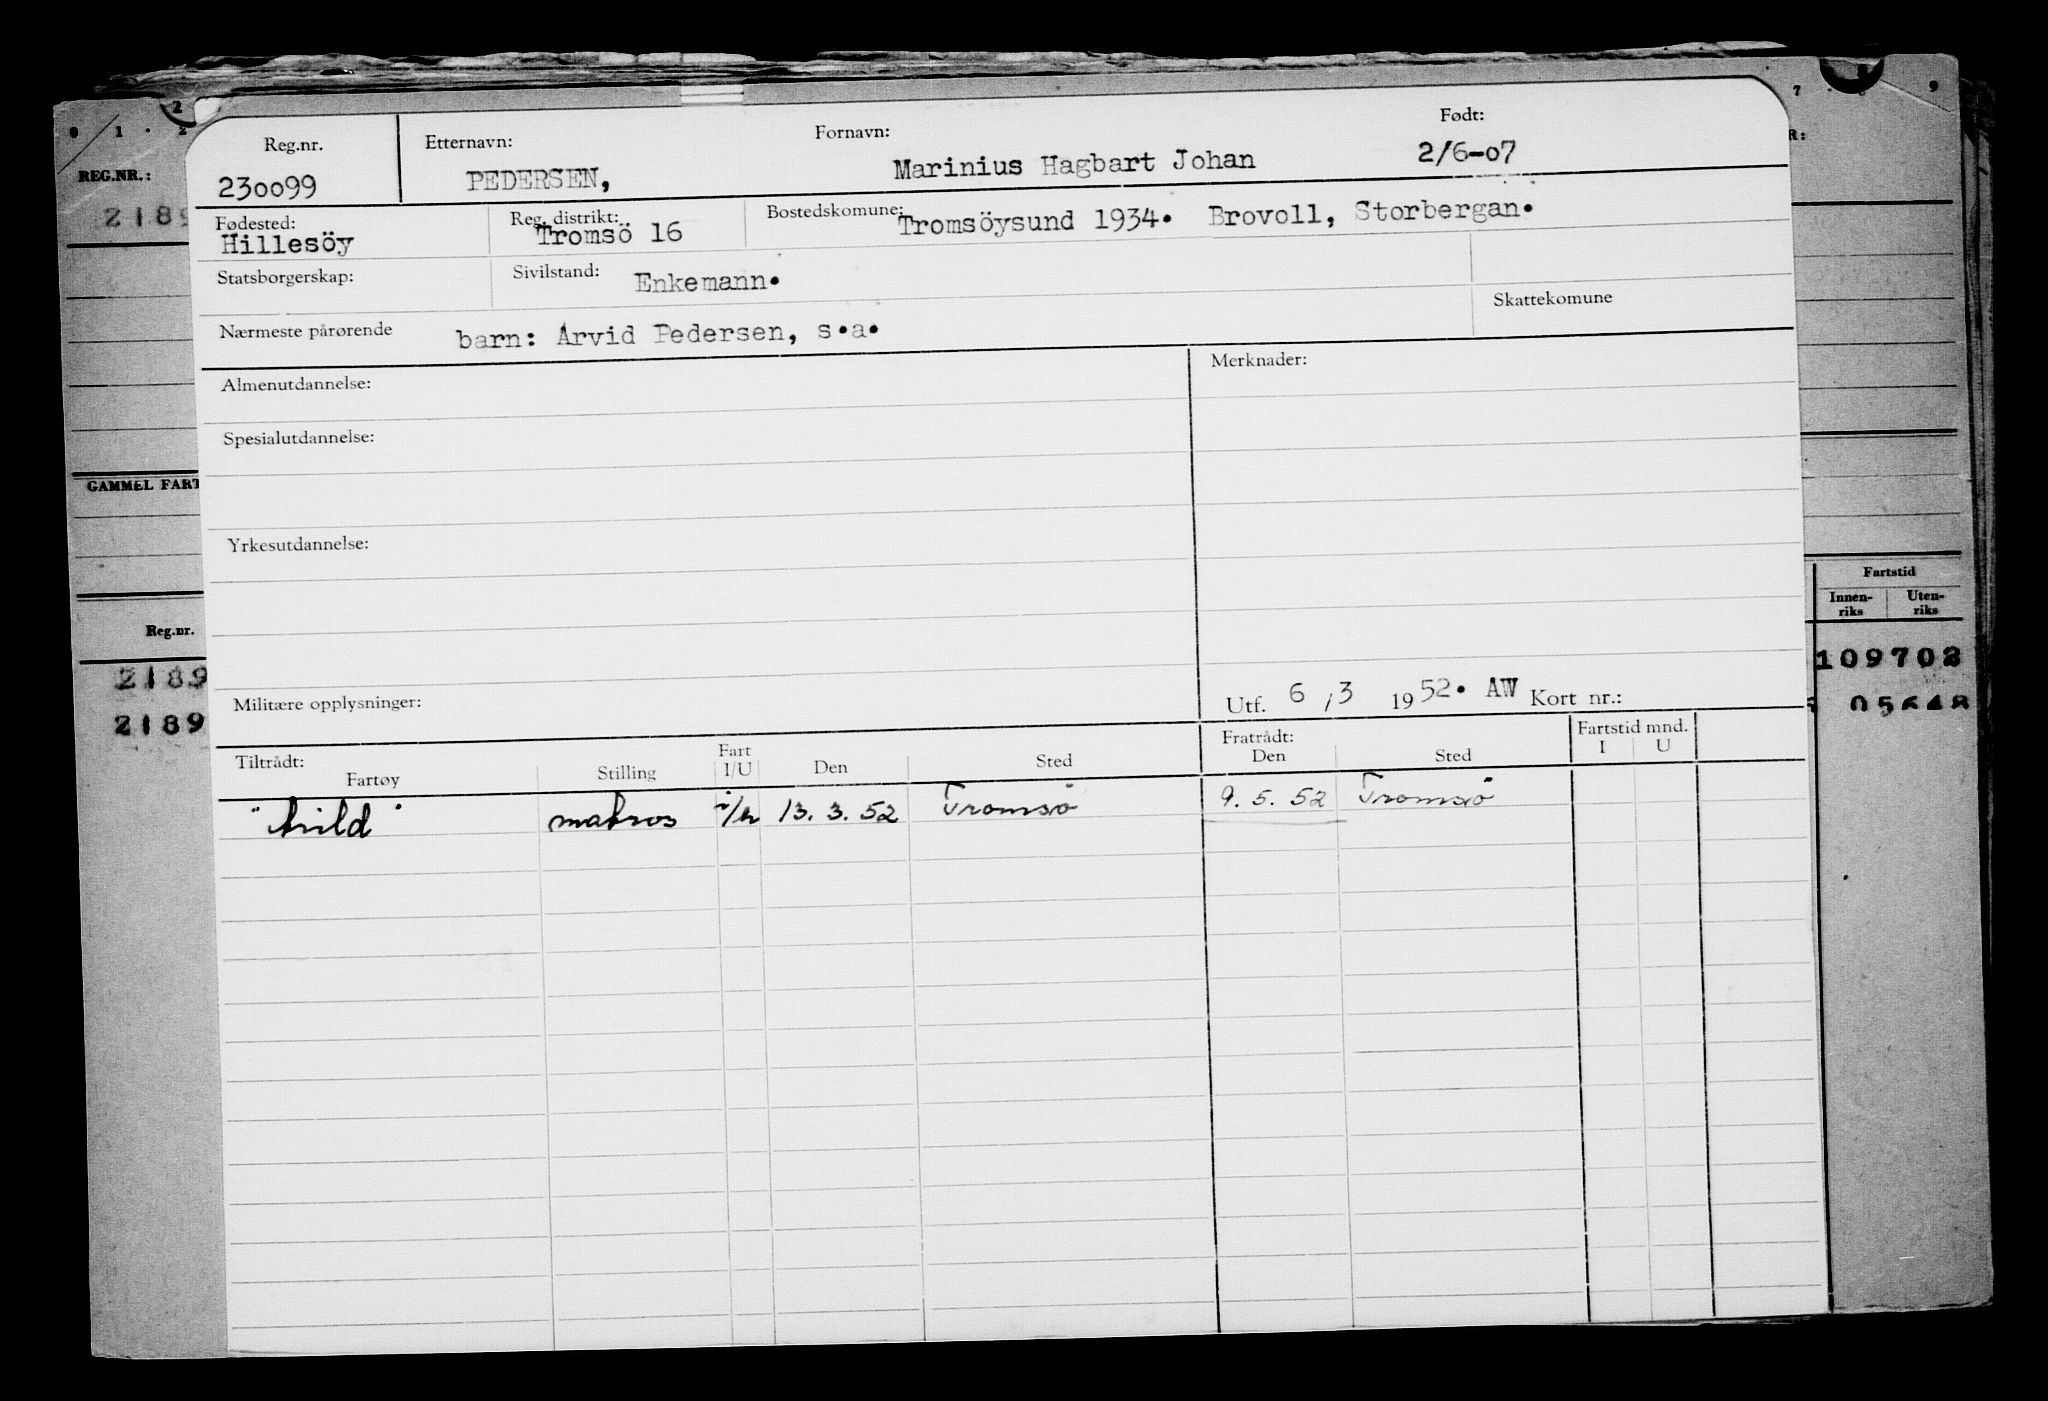 0 1 · 2
2
7 · 8 9
REG.NR.:
R:
2189
GAMMEL FART
Reg.nr.
2189
2189
Fartstid
Innen-
riks
Uten-
riks
109702
05648
Reg.nr. Etternavn: Fornavn: Født:
230099 PEDERSEN, Marinius Hagbart Johan 2/6-07
Fødested: Reg. distrikt: Bostedskomune:
Hillesöy Tromsö 16 Tromsöysund 1934. Brovoll, Storbergan.
Statsborgerskap: Sivilstand: Enkemann.
Skattekomune
Nærmeste pårørende barn: Arvid Pedersen, s.a.
Almenutdannelse: Merknader:
Spesialutdannelse:
Yrkesutdannelse:
Militære opplysninger: Utf. 6 / 3 1952. AW Kort nr.:
Tiltrådt: Fratrådt: Fartstid mnd.
Fartøy Stilling Fart I/U Den Sted Den Sted I U
"Arild" matros 13. 3. 52 Tromsö 9. 5. 52 Tromsö